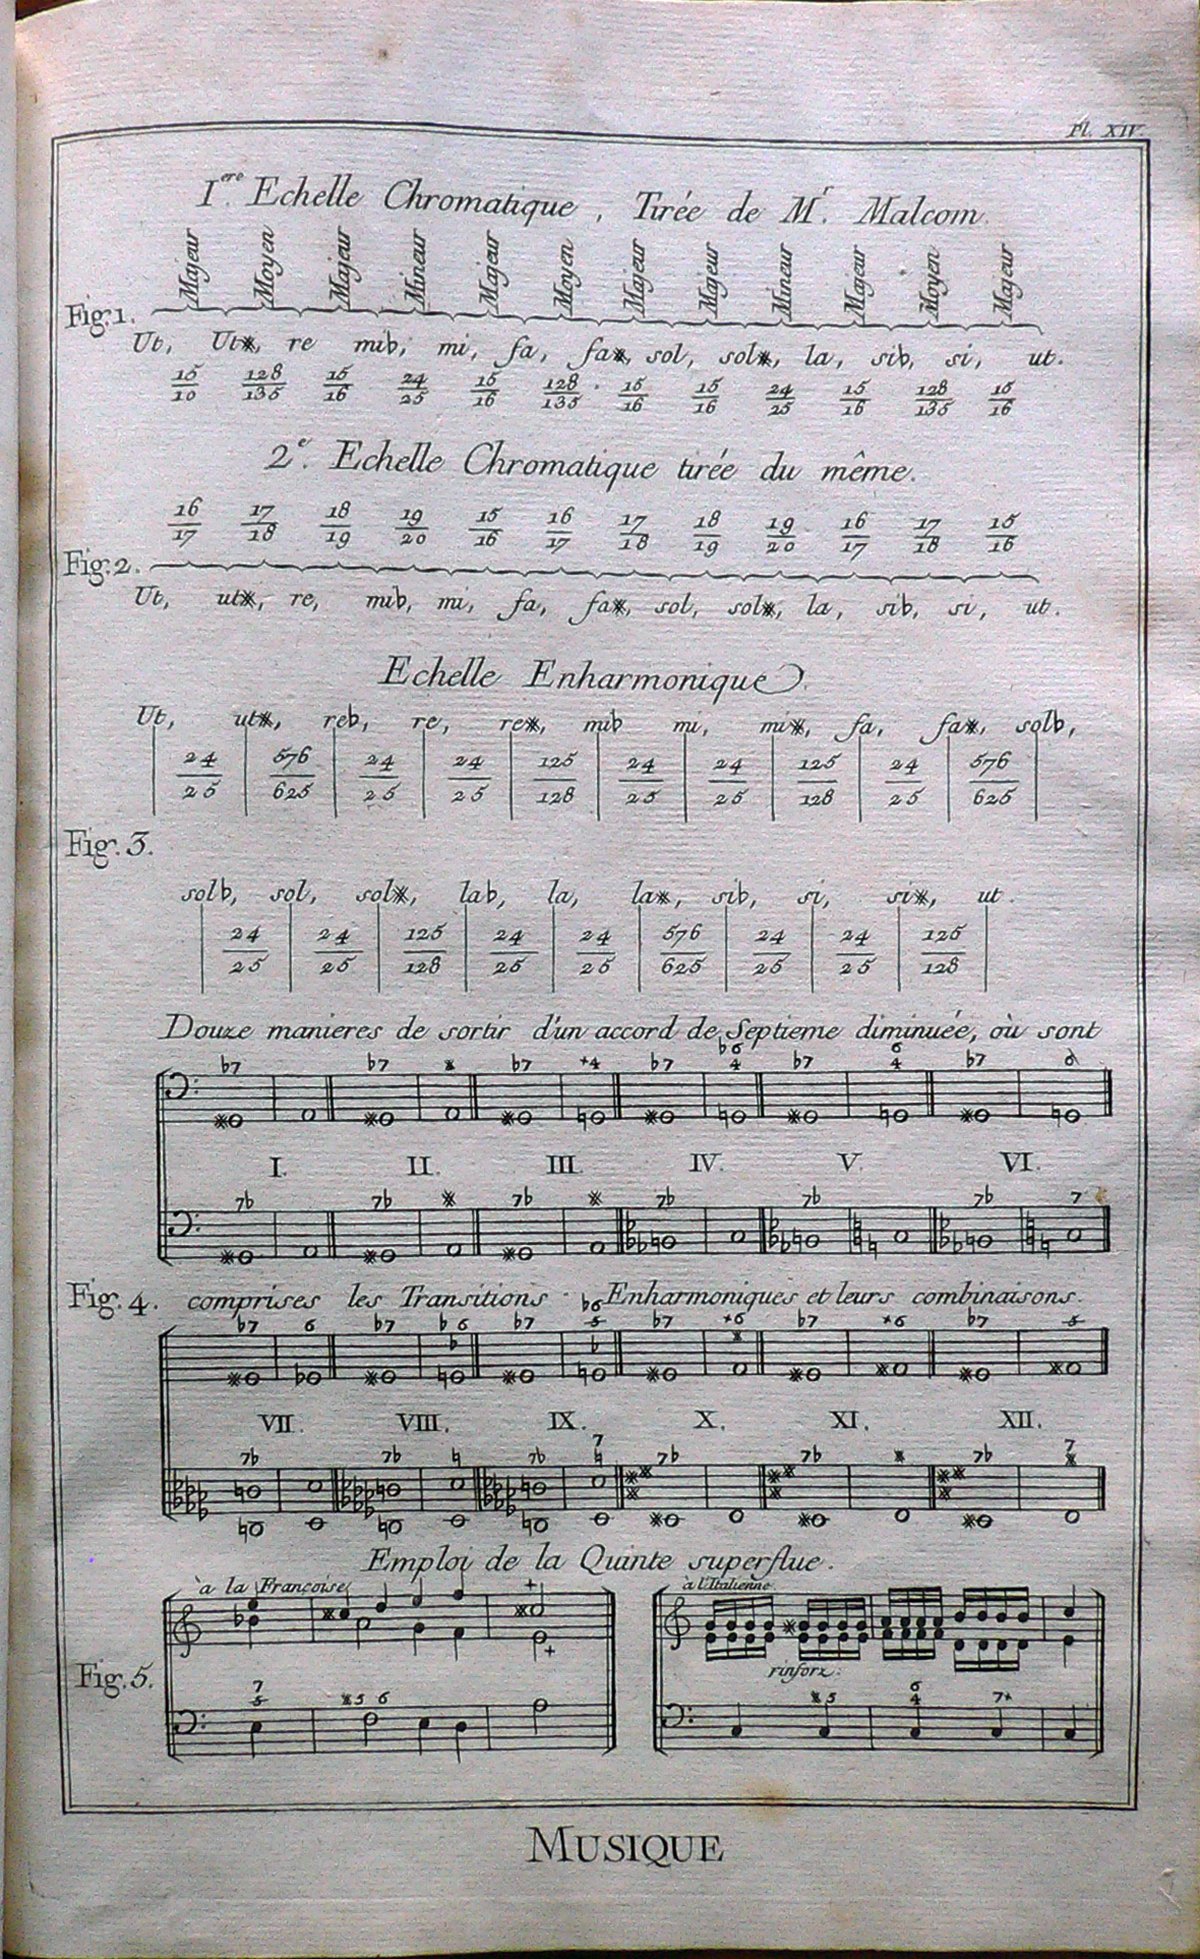 Pl. XIV.
I.ere Echelle Chromatique, Tirée de M.r Malcom.
Majeur Moyen Majeur Mineur Majeur Moyen Majeur Majeur Mineur Majeur Moyen Majeur
Fig. 1.
Ut, Ut⨳, re mi♭, mi, fa, fa⨳, sol, sol⨳, la, si♭, si, ut.
15/10 128/135 15/16 24/25 15/16 128/135 15/16 15/16 24/25 15/16 128/135 15/16
2.e Echelle Chromatique tirée du même.
16/17 17/18 18/19 19/20 15/16 16/17 17/18 18/19 19/20 16/17 17/18 15/16
Fig. 2.
Ut, ut⨳, re, mi♭, mi, fa, fa⨳, sol, sol⨳, la, si♭, si, ut.
Echelle Enharmonique.
Ut, ut⨳, re♭, re, re⨳, mi♭ mi, mi⨳, fa, fa⨳, sol♭,
24/25 576/625 24/25 24/25 125/128 24/25 24/25 125/128 24/25 576/625
Fig. 3.
sol♭, sol, sol⨳, la♭, la, la⨳, si♭, si, si⨳, ut.
24/25 24/25 125/128 24/25 24/25 576/625 24/25 24/25 125/128
Douze manieres de sortir d'un accord de Septieme diminuée, où sont
♭7 ♭7 ⨳ ♭7 +4 ♭7 ♭6 4 ♭7 6 4 ♭7
I. II. III. IV. V. VI.
7♭ 7♭ ⨳ 7♭ ⨳ 7♭ 7♭ 7♭ 7
Fig. 4. comprises les Transitions Enharmoniques et leurs combinaisons.
♭7 6 ♭7 ♭6 ♭7 ♭6 5 ♭7 +6 ♭7 +6 ♭7 5
VII. VIII. IX. X. XI. XII.
7♭ 7♭ ♮ 7♭ 7 ♮ 7♭ 7♭ ⨳ 7♭ 7 ⨳
Emploi de la Quinte superflue.
à la Françoise
à l'Italienne
rinforz.
Fig. 5.
7 5 ⨳5 6
⨳5 6 4 7+
MUSIQUE